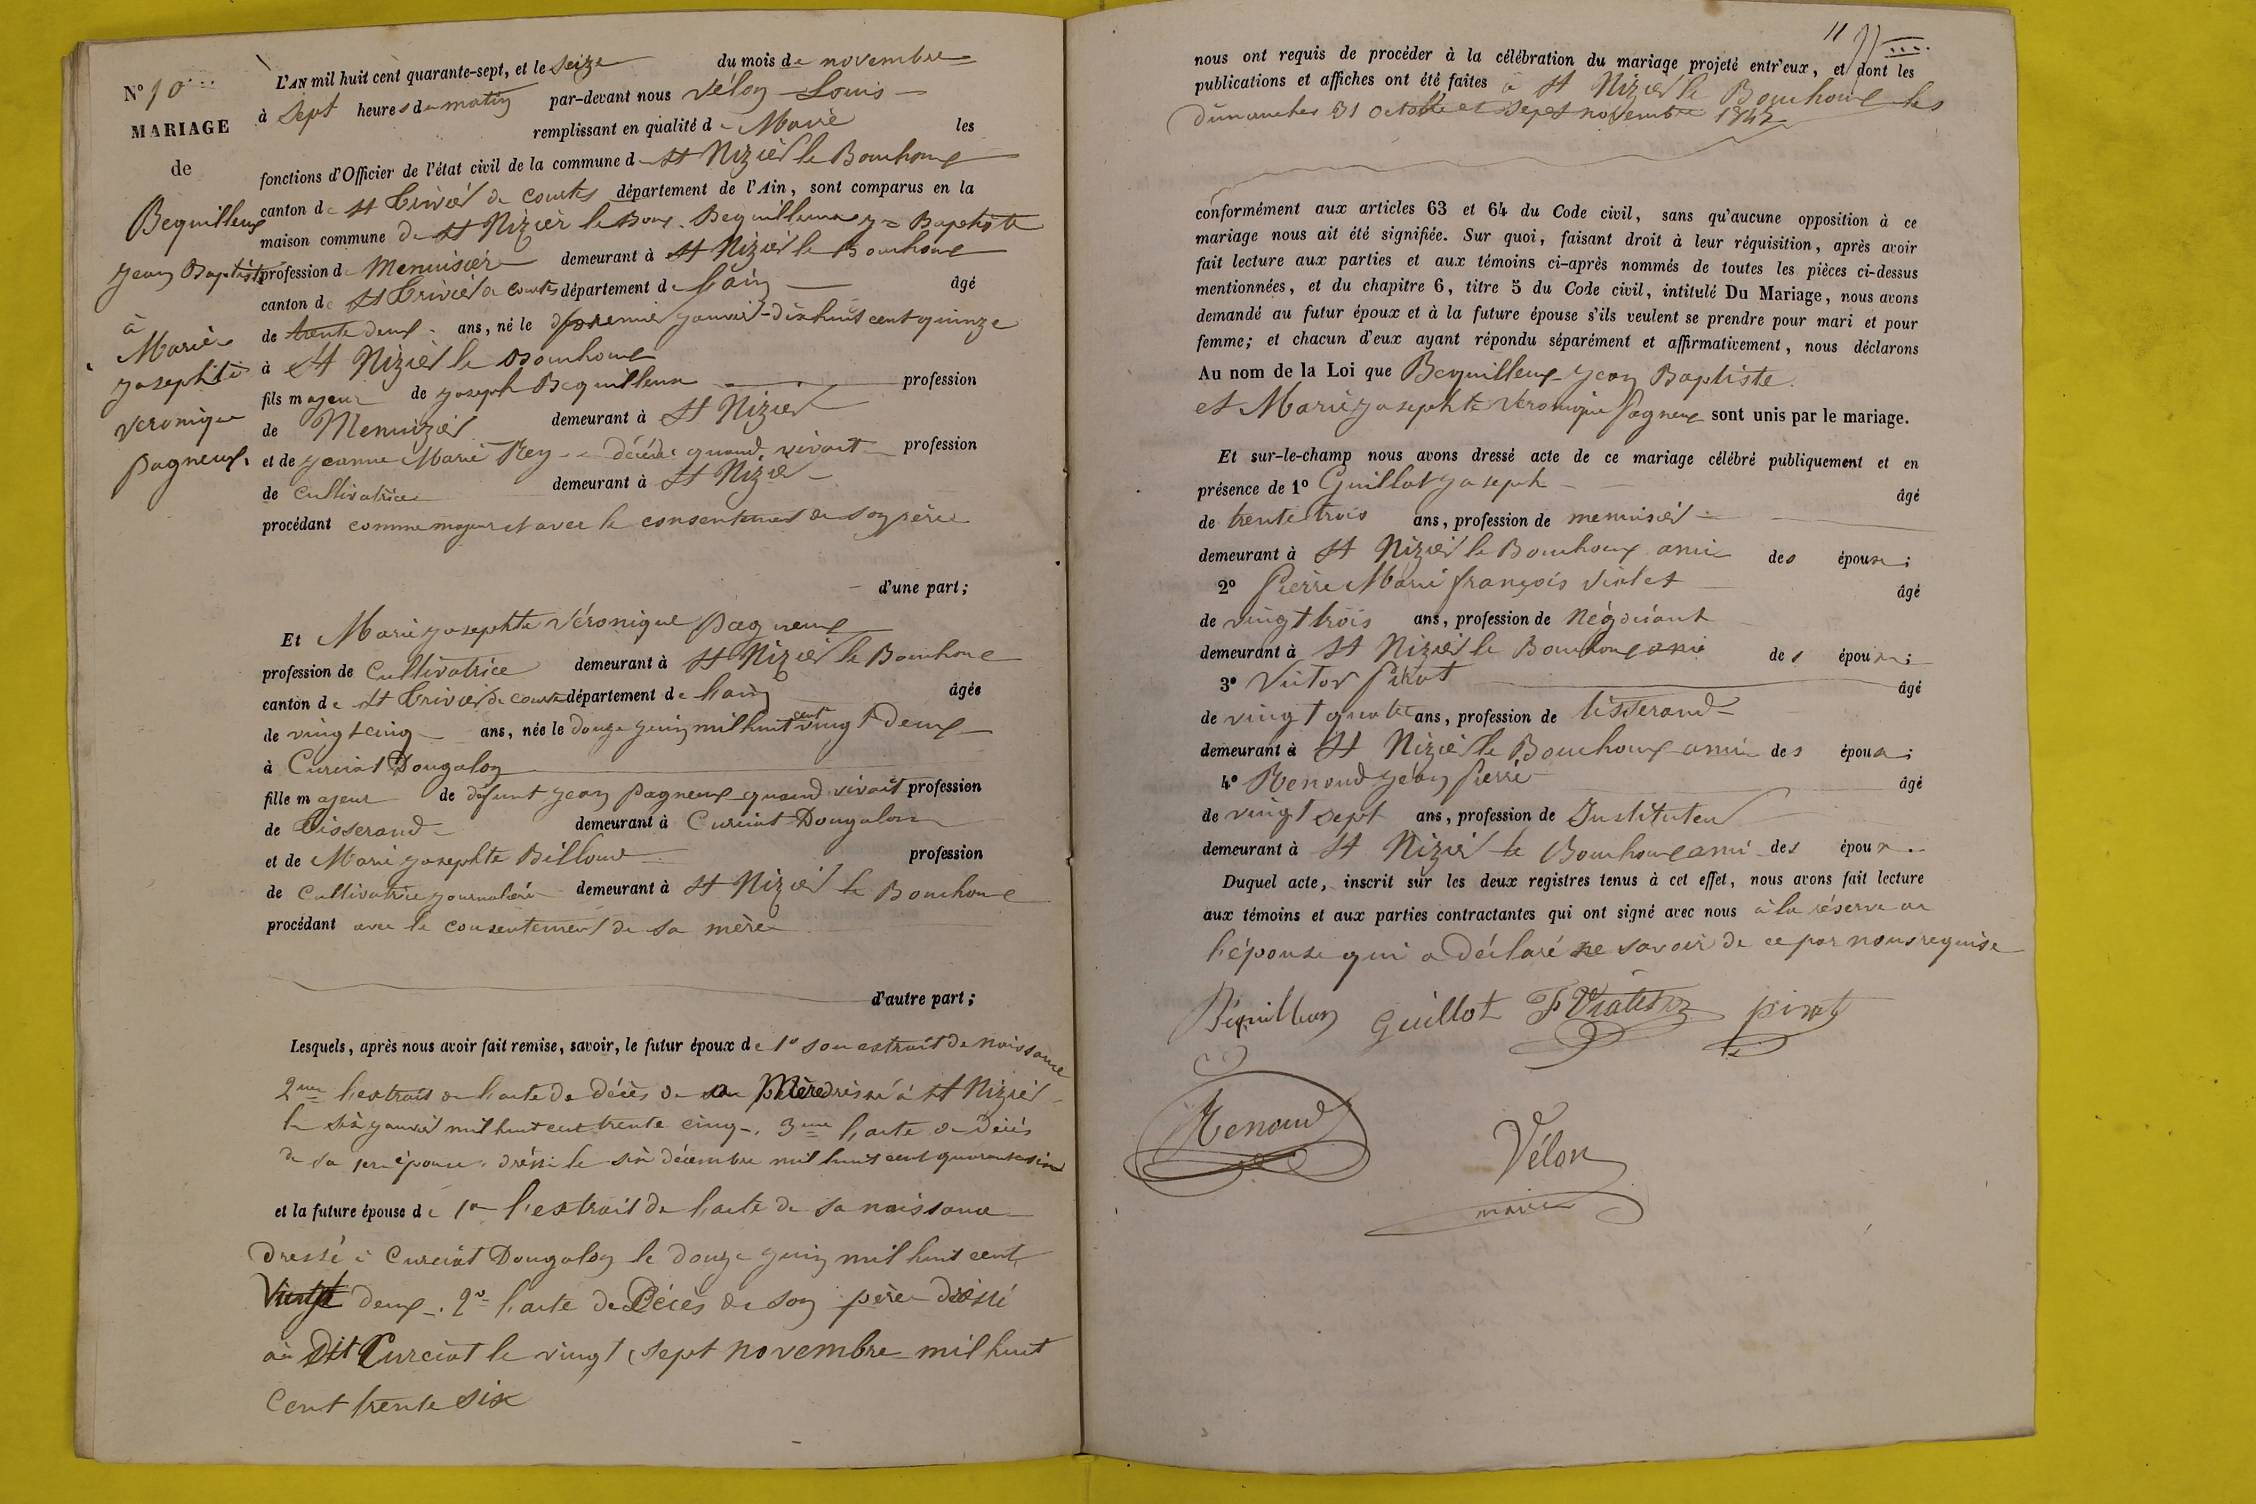 N° 10
MARIAGE
de
Bequilleux
Jean Baptiste
à
Marie
Josephte
Veronique
pagneux.
L'AN mil huit cent quarante-sept, et le seize du mois de novembre
à sept heures du matin par-devant nous Vélon Louis
remplissant en qualité de Maire les
fonctions d'Officier de l'état civil de la commune de St Nizier le Bouchoux
canton de St Trivier de Courtes département de l'Ain, sont comparus en la
maison commune de St Nizier le Bou. Bequilleux Jn Baptiste
profession de Menuisier demeurant à St Nizier le Bouchoux
canton de St Trivier de Courtes département de l'ain âgé
de trente deux ans, né le premier janvier dix huit cent quinze
à St Nizier le Bouchoux
fils majeur de joseph Bequilleux profession
de Menuizier demeurant à St Nizier
et de jeanne Marie Rey décédée quand vivait profession
de cultivatrice demeurant à St Nizier
procédant comme majeur et avec le consentement de son père
d'une part;
Et Marie josephte Véronique pagneux
profession de Cultivatrice demeurant à St Nizier le Bouchoux
canton de St Trivier de Courtes département de l'ain âgée
de vingt cinq ans, née le douze juin mil huit cent vingt deux
à Curciat Dongalon
fille majeur de défunt jean pagneux quand vivait profession
de Tisserand demeurant à Curciat Dongalon
et de Marie josephte Billoud profession
de Cultivatrice journalière demeurant à St Nizier le Bouchoux
procédant avec le consentement de sa mère
d'autre part;
Lesquels, après nous avoir fait remise, savoir, le futur époux de 1° son extrait de naissance
2me l'extrait de l'acte de décès de sa Mère dressé à St Nizier
le six janvier mil huit cent trente cinq. 3me l'acte de décès
de sa 1ere épouse dréssé le six décembre mil huit cent quarante six
et la future épouse de 1° l'extrait de l'acte de sa naissance
dressé à Curciat Dongalon le douze juin mil huit cent
Vingt deux. 2° l'acte de Décès de son père dréssé
au Dit Curciat le vingt sept novembre mil huit
Cent trente six
11
nous ont requis de procéder à la célébration du mariage projeté entr'eux, et dont les
publications et affiches ont été faites à St Nizier le Bouchoux les
dimanches 31 octobre et sept novembre 1847
conformément aux articles 63 et 64 du Code civil, sans qu'aucune opposition à ce
mariage nous ait été signifiée. Sur quoi, faisant droit à leur réquisition, après avoir
fait lecture aux parties et aux témoins ci-après nommés de toutes les pièces ci-dessus
mentionnées, et du chapitre 6, titre 5 du Code civil, intitulé Du Mariage, nous avons
demandé au futur époux et à la future épouse s'ils veulent se prendre pour mari et pour
femme; et chacun d'eux ayant répondu séparément et affirmativement, nous déclarons
Au nom de la Loi que Bequilleux Jean Baptiste
et Marie josephte Véronique Pagneux sont unis par le mariage.
Et sur-le-champ nous avons dressé acte de ce mariage célébré publiquement et en
présence de 1° Guillot joseph âgé
de trente trois ans, profession de menuisier
demeurant à St Nizier le Bouchoux ami des époux;
2° Pierre Marie françois Violet âgé
de vingt trois ans, profession de Négociant
demeurant à St Nizier le Bouchoux ami des époux;
3° Victor Pirat âgé
de vingt quatre ans, profession de tisserand
demeurant à St Nizier le Bouchoux ami des époux;
4° Renoud jean Pierre âgé
de vingt sept ans, profession de Instituteur
demeurant à St Nizier le Bouchoux ami des époux.
Duquel acte, inscrit sur les deux registres tenus à cet effet, nous avons fait lecture
aux témoins et aux parties contractantes qui ont signé avec nous à la réserve de
l'épouse qui a déclaré ne savoir de ce par nous requise
Béquilleux Guillot pirat
Renoud
Vélon
maire